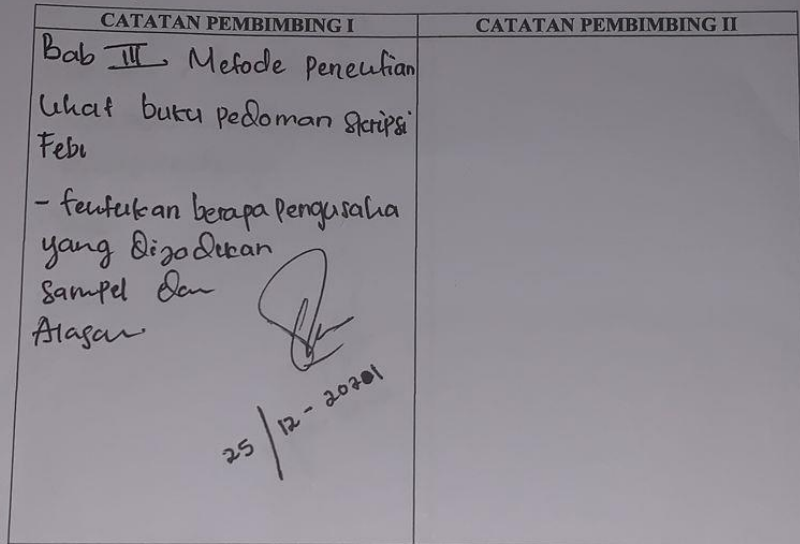 CATATAN PEMBIMBING I
CATATAN PEMBIMBING II
Bab III Metode Penelitian
Lihat buku pedoman Skripsi
Febi
- tentukan berapa Pengusaha
yang dijadikan
Sampel dan
Alasan
25/12-